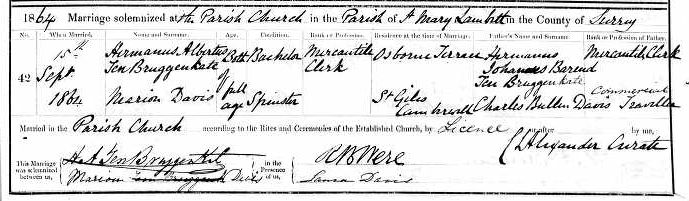 1864 Marriage solemnized at the Parish Church in the Parish of St Mary Lambeth in the County of Surrey
When Married. Name and Surname. Age. Condition. Rank or Profession. Residence at the time of Marriage. Father's Name and Surname. Rank or Profession of Father.
15th Hermanus Albertus Both Bachelor Mercantile Osborne Terrace Hermanus Mercantile Clerk
42 Sept Ten Bruggenkate of Clerk Johannes Barend
Ten Bruggenkate
1864 Marion Davis full age Spinster St Giles Camberwell Charles Bullen Davis Commercial Traveller
Married in the Parish Church according to the Rites and Ceremonies of the Established Church, by Licence or after by me,
C Alexander Curate
This Marriage was solemnized between us, H A Ten Bruggenkate in the Presence of us, R B Were
Marion Ten Bruggenk Davis Davis